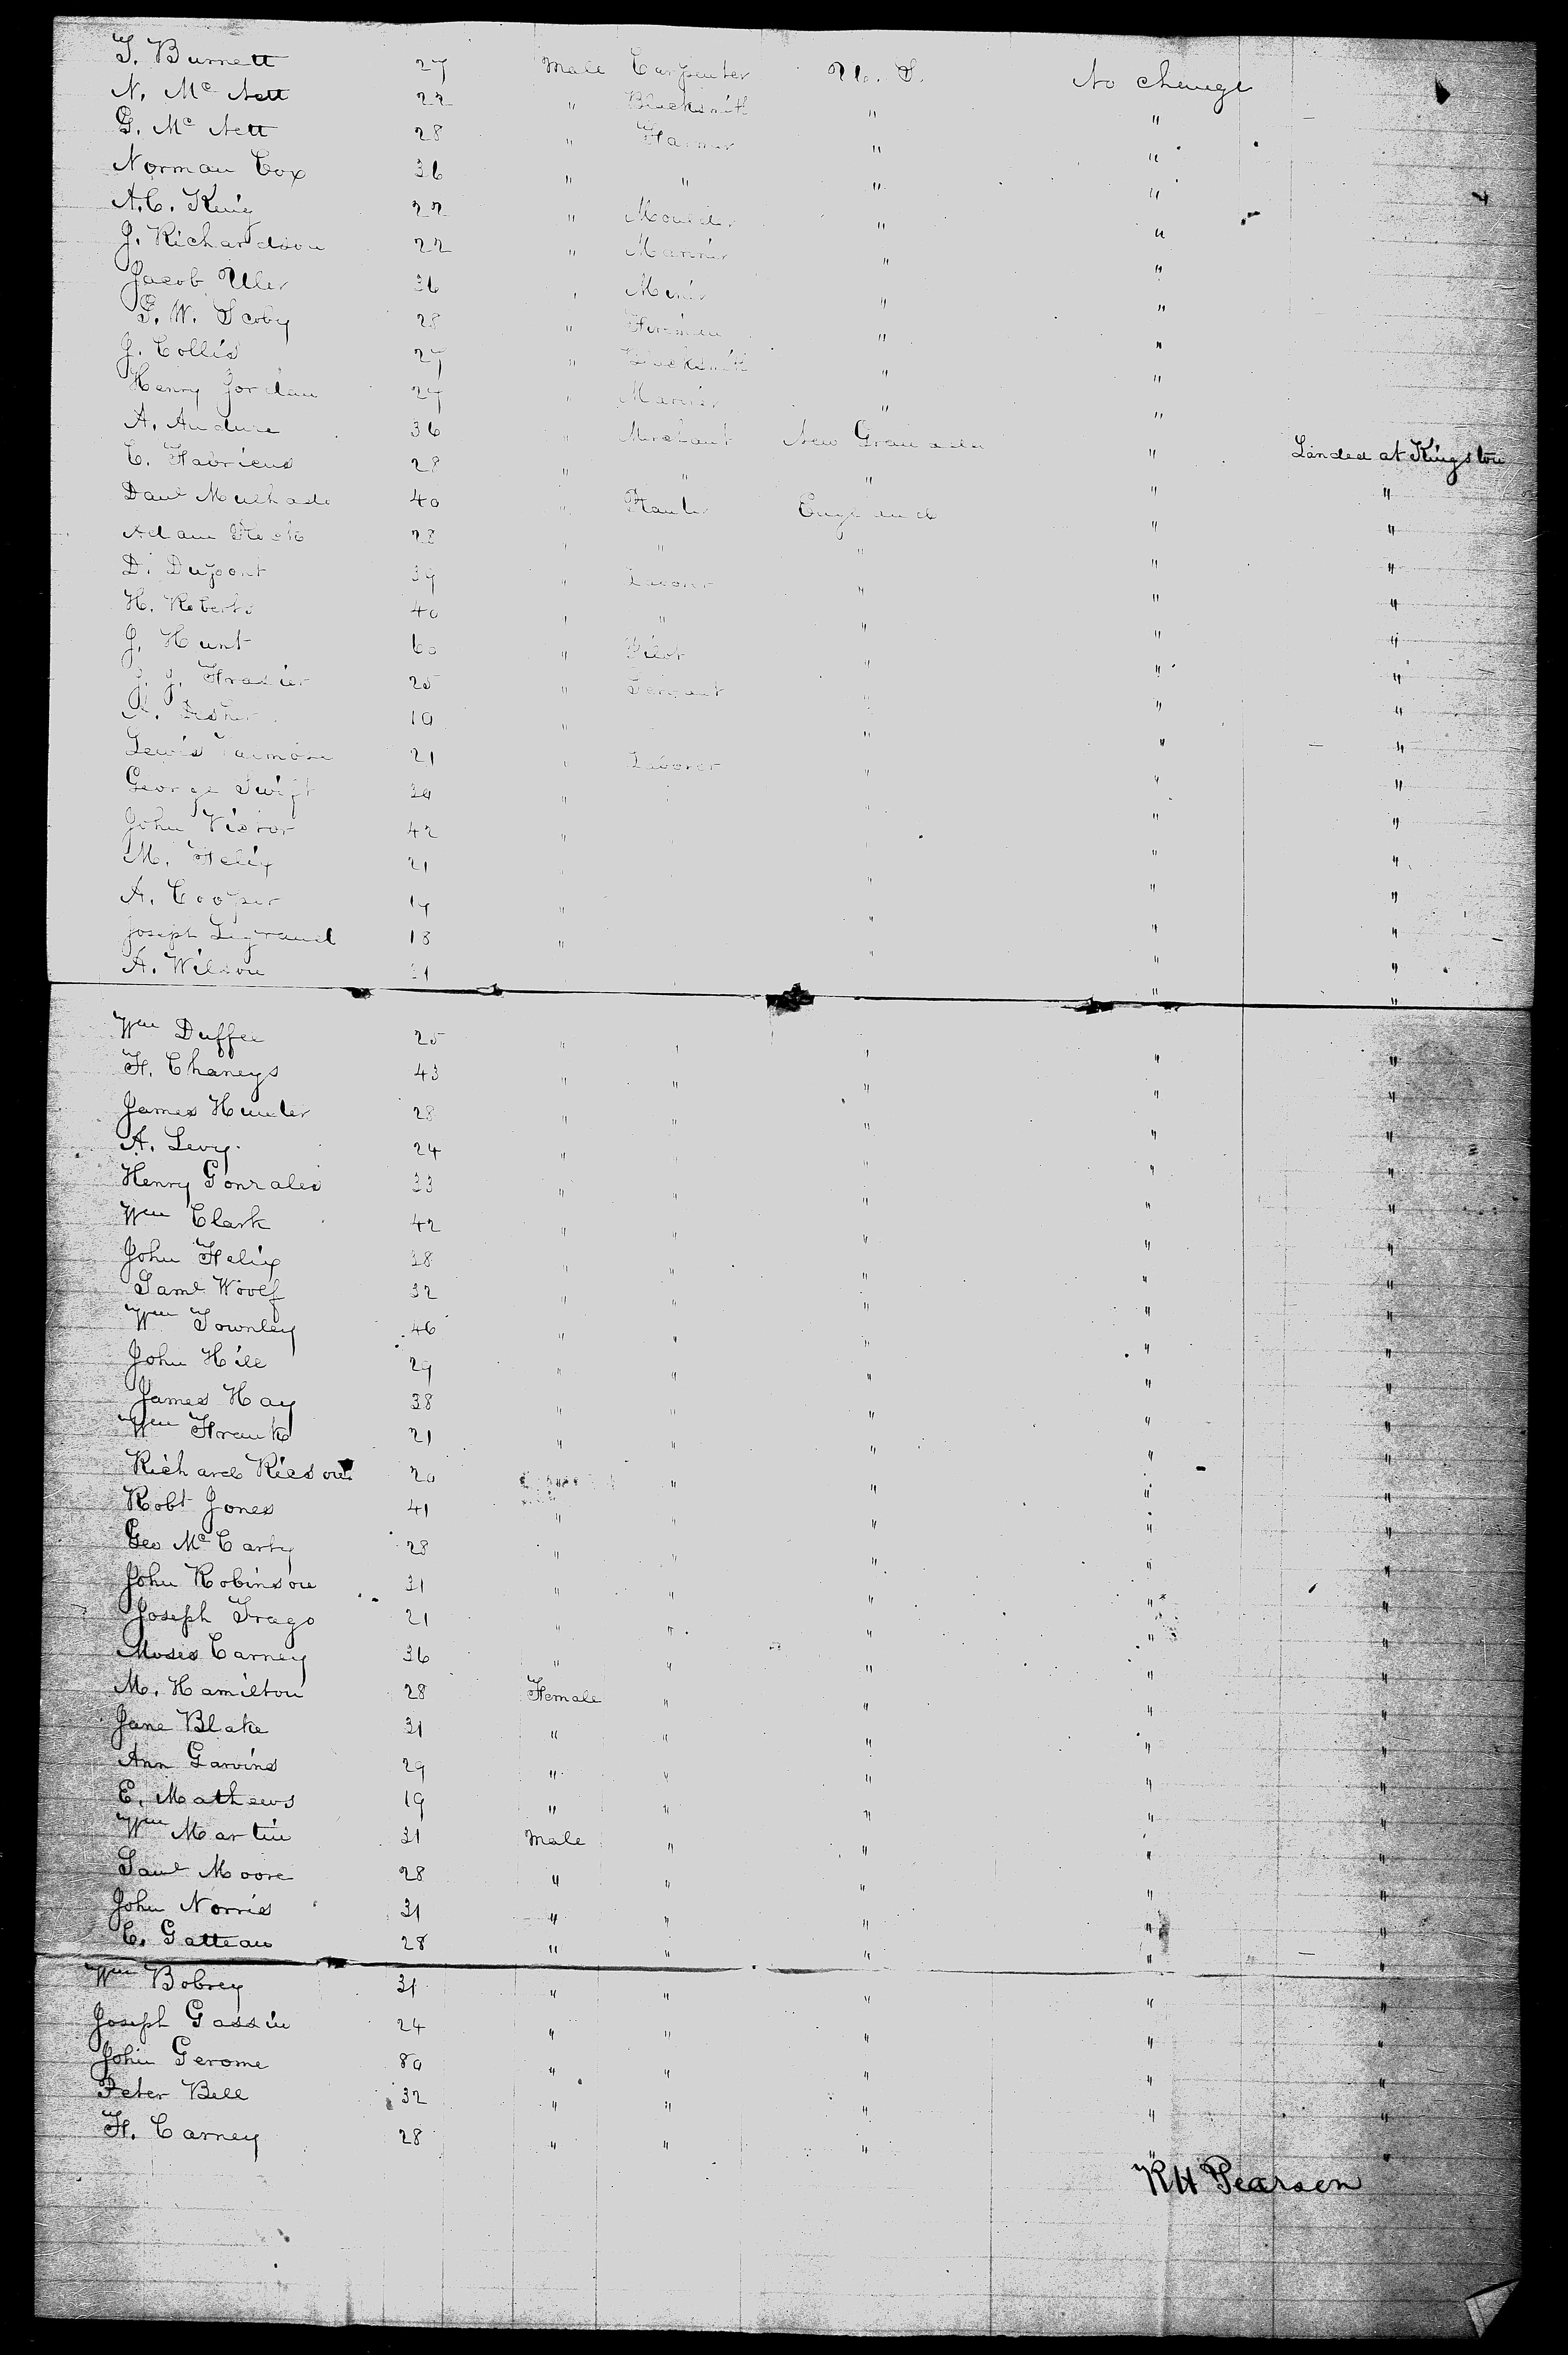 T. Burnett 27 Male Carpenter U. S. No change
N. Mc Nett 22 " Blacksmith " "
G. Mc Nett 28 " Farmer " "
Norman Cox 36 " " " "
A. C. King 22 " Moulder " "
J. Richardson 22 " Mariner " "
Jacob Uler 36 " Miner " "
G. W. Scoby 28 " Fireman " "
J. Collis 27 " Blacksmith " "
Henry Jordan 27 " Mariner " "
A. Andure 36 " Merchant New Granada " Landed at Kingston
C. Fabricus 28 " " " " "
Danl Mulhado 40 " Planter England " "
Adam 28 " " " " "
D. Dupont 39 " Laborer " " "
H. Roberts 40 " " " " "
J. Hunt 60 " Pilot " " "
J. J. Frasier 25 " Servant " " "
A. Fisher 19 " " " "
Lewis 21 " Laborer " " "
George Swift 30 " " " " "
John Victor 42 " " " " "
M. Felix 21 " " " " "
A. Cooper 17 " " " "
Joseph Legrand 18 " " " "
A. Wilson 31 " " "
Wm Duffee 25 " " " " "
F. Chaneys 43 " " " " "
James Hunter 28 " " " " "
A. Levy 24 " " " " "
Henry Gonzales 33 " " " " "
Wm Clark 42 " " " " "
John Felix 38 " " " " "
Saml Woolf 32 " " " " "
Wm Townley 46 " " " " "
John Hill 29 " " " " "
James Hay 38 " " " " "
Wm Frank 21 " " " " "
Richard 20 " " " "
Robt Jones 41 " " " " "
Geo Mc Carty 28 " " " " "
John Robinson 31 " " " " "
Joseph Trago 21 " " " " "
Moses Carney 36 " " " " "
M. Hamilton 28 Female " " " "
Jane Blake 31 " " " " "
Ann Garvins 29 " " " " "
E. Mathews 19 " " " " "
Wm Martin 31 Male " " " "
Saml Moore 28 " " " " "
John Norris 31 " " " " "
C. Gatteau 28 " " " " "
Wm Bobrey 31 " " " " "
Joseph Gassin 24 " " " " "
John Gerome 30 " " " " "
Peter Bell 32 " " " " "
F. Carney 28 " " " " "
RH Pearson